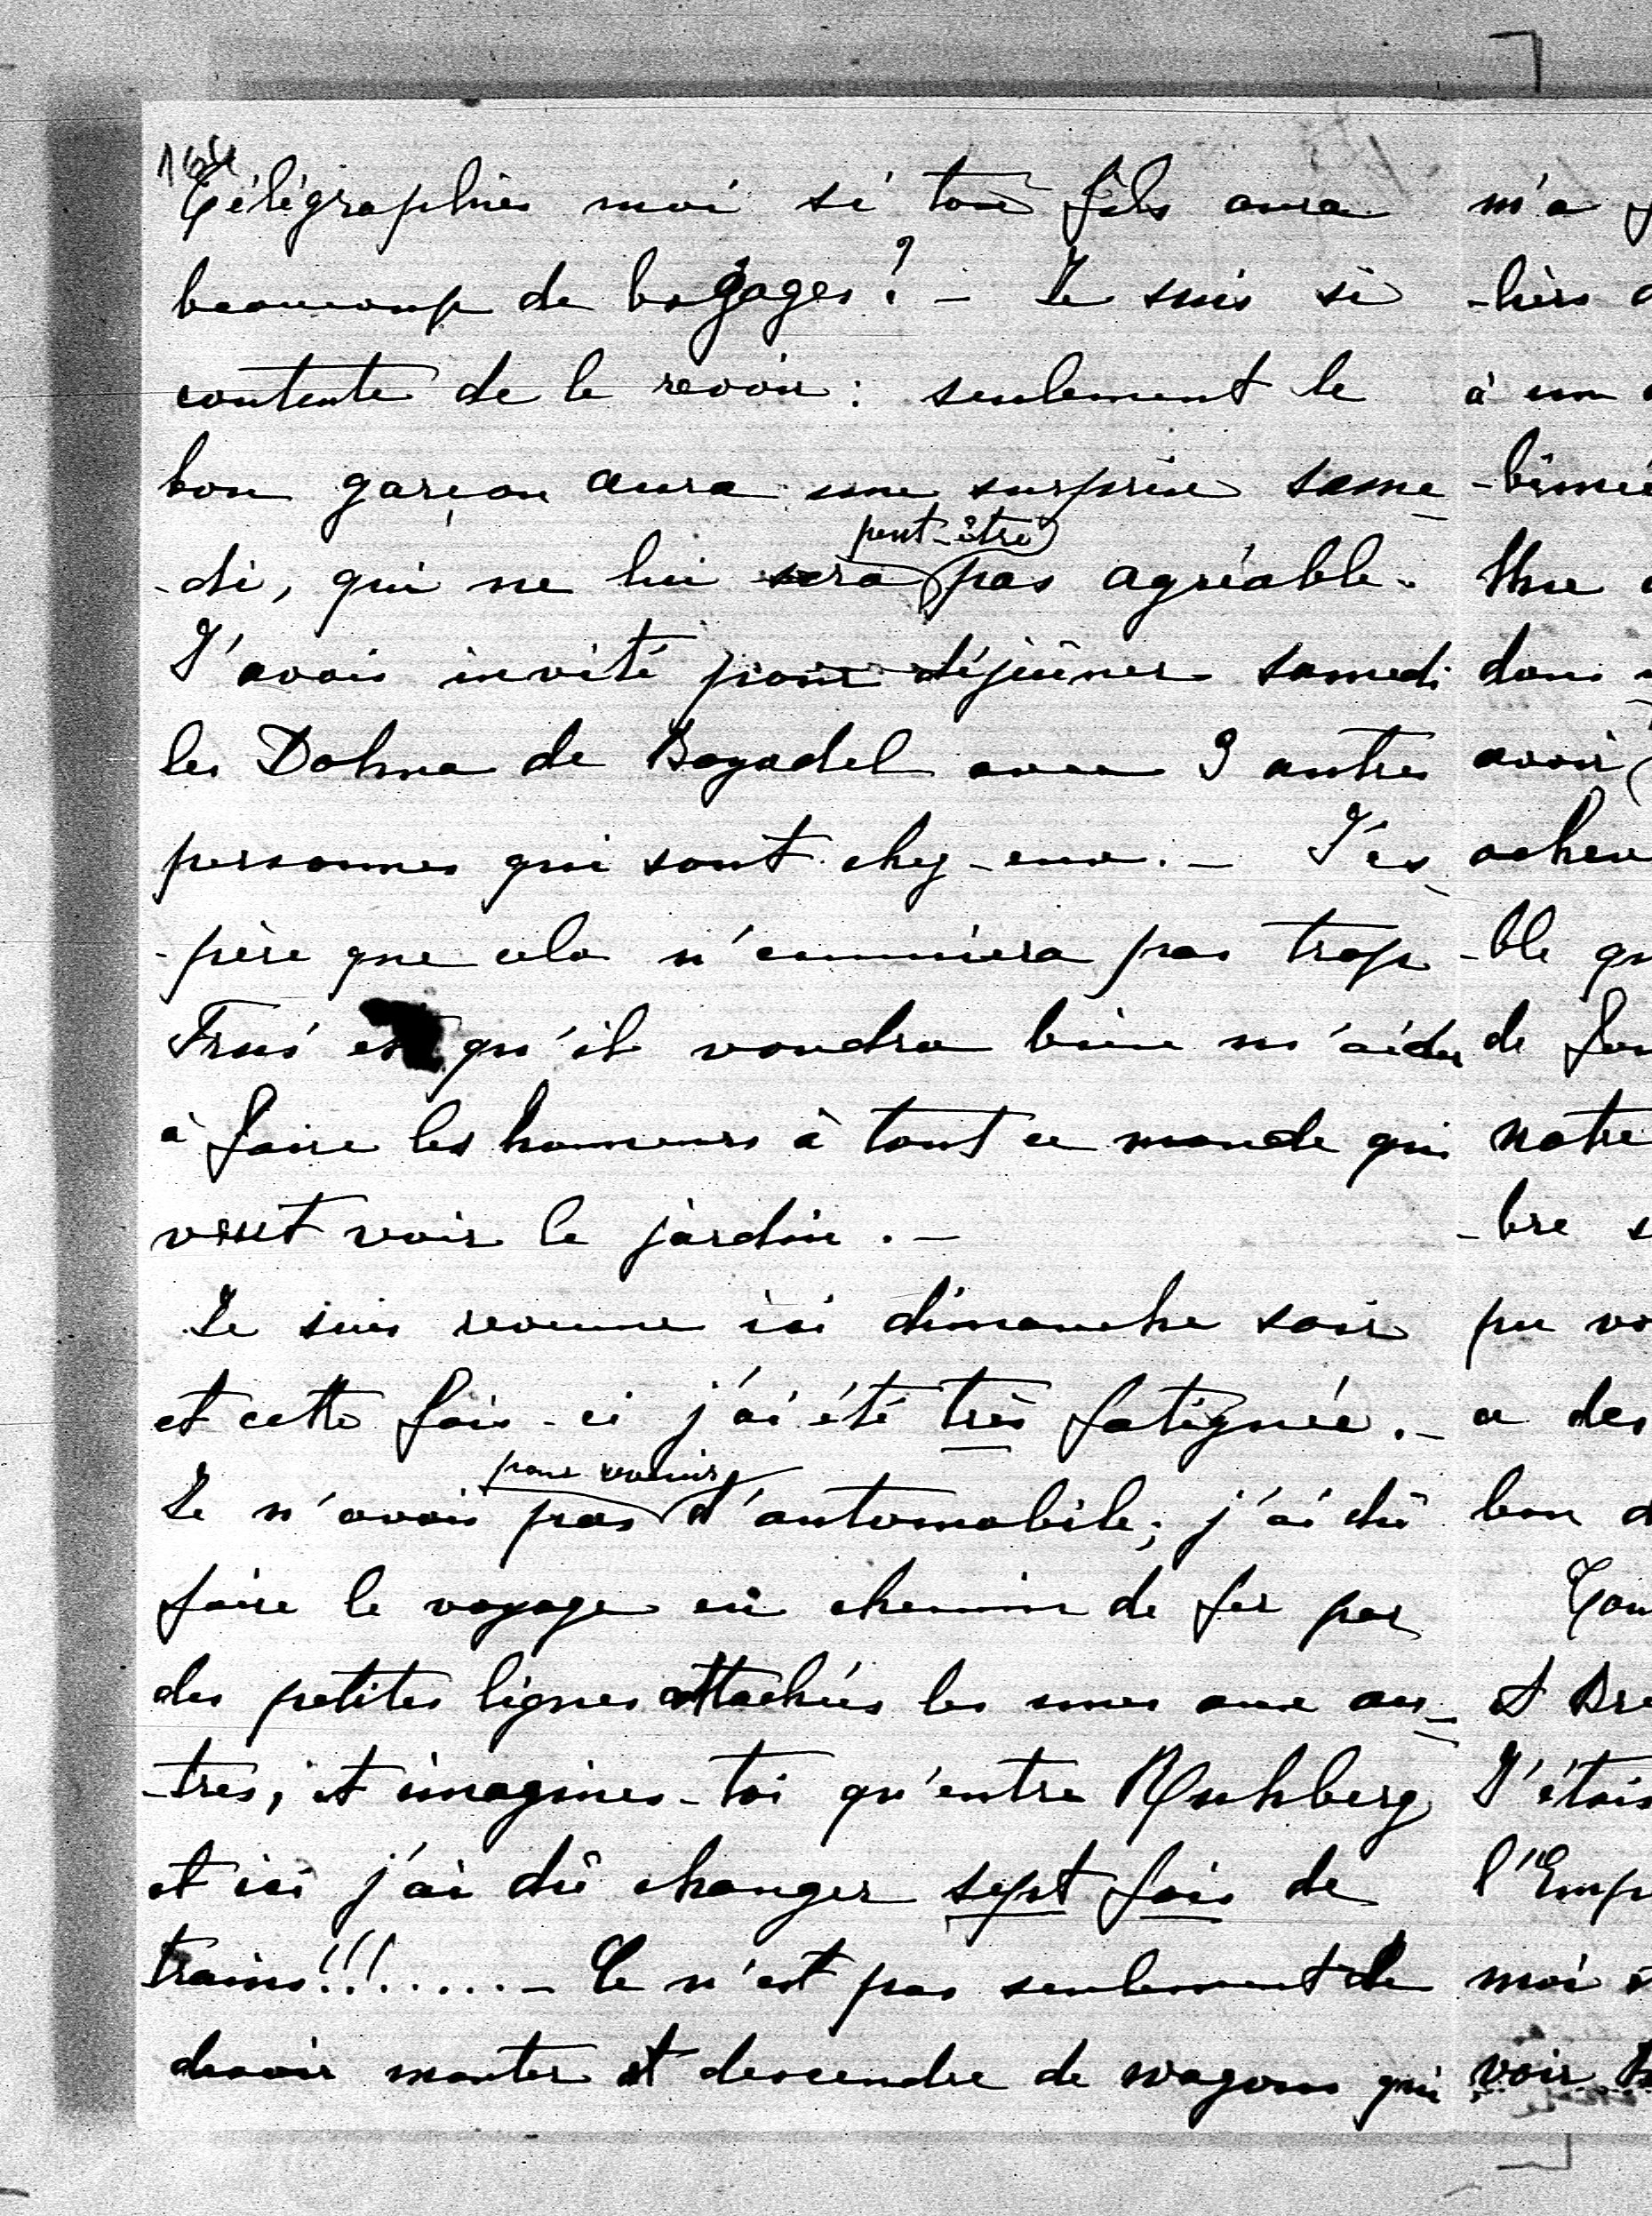 164
Télégraphies moi si ton fils aura
beaucoup de bagages? – Je suis si
contente de le revoir: seulement le
bon garçon aura une surprise same-
peut-être
-di, qui ne lui sera pas agréable.
J'avais invité pour déjeûner samedi
les Dohna de avec 3 autres
personnes qui sont chez-eux. – J'es-
-père que cela n'ennuiera pas trop
et qu'il voudra bien m'aider
à faire les honneurs à tout ce monde qui
veut voir le jardin. –
Je suis revenue ici dimanche soir
et cette fois-ci j'ai été très fatiguée. –
pour revenir
Je n'avais pas d'automobile; j'ai dû
faire le voyage en chemin de fer par
des petites lignes attachées les unes aux au-
-tres, et imagines-toi qu'entre Ruhberg
et ici j'ai dû changer sept fois de
trains!!!...... – Ce n'est pas seulement de
devoir monter et descendre de wagons qui
m'a
-liers
à un
Une
dans
avoir
-ble
de
notre
-bre
pu
a des
bon
J'étais
moi
voir